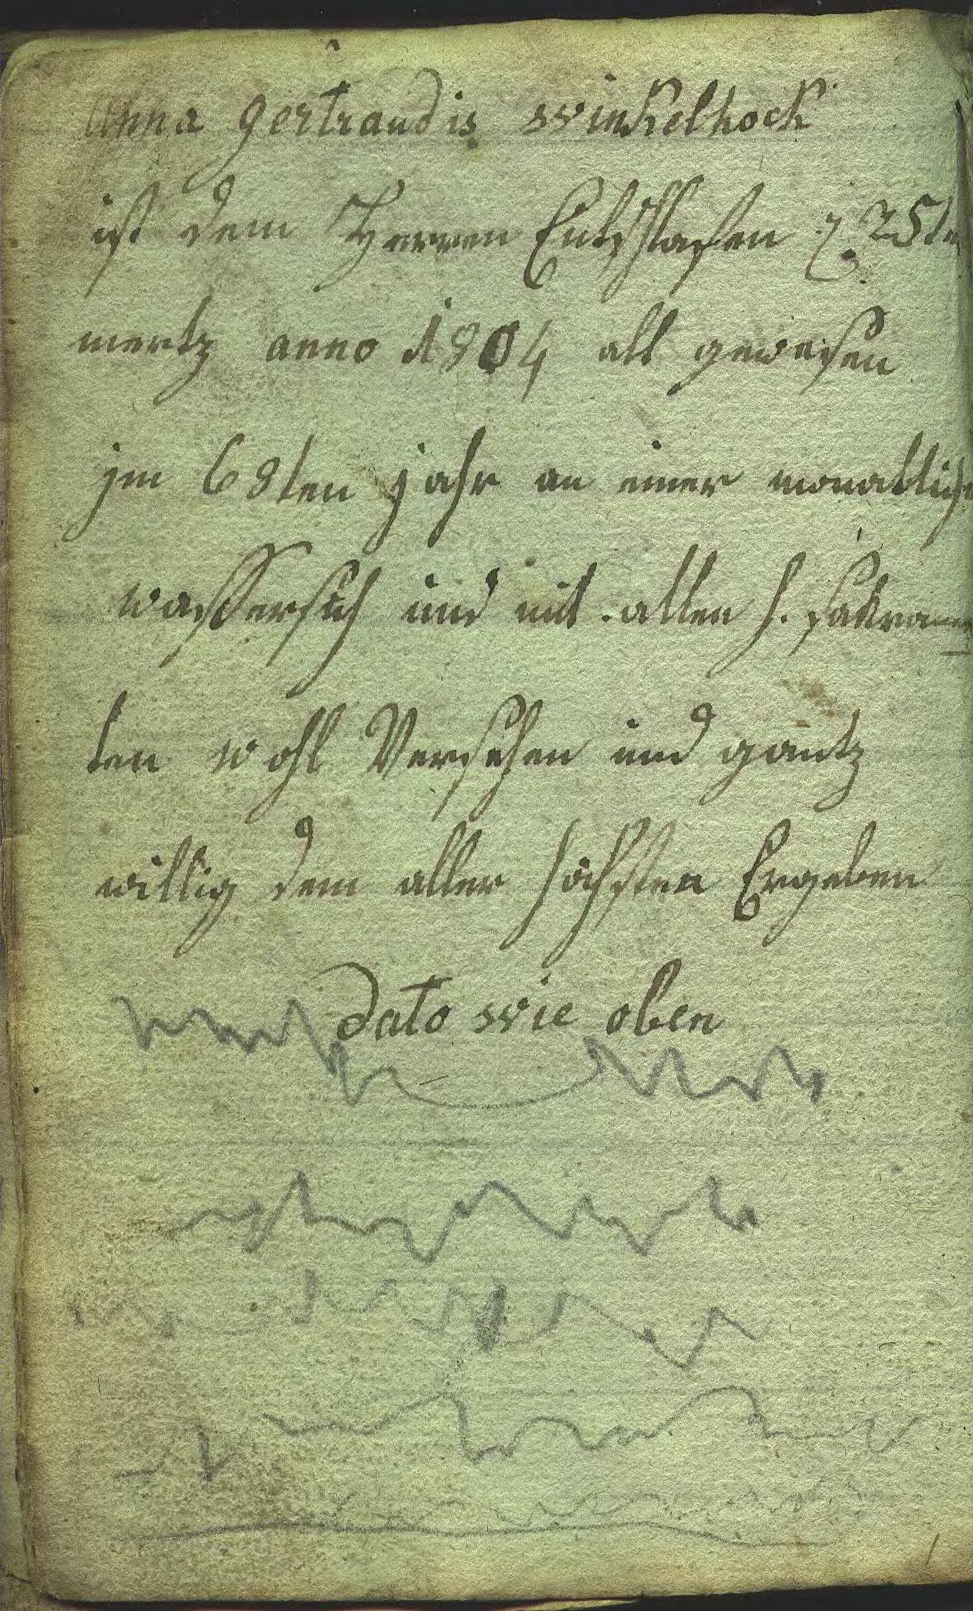 Anna gertraudis winkelhock
ist dem Herren Entschlafen 25ten
mertz anno 1804 alt gewesen
jm 68ten jahr an einer monatlich
wassersuch und mit allen h. sakramen
ten wohl Versehen und gantz
willig dem aller höchsten Ergeben
dato wie oben